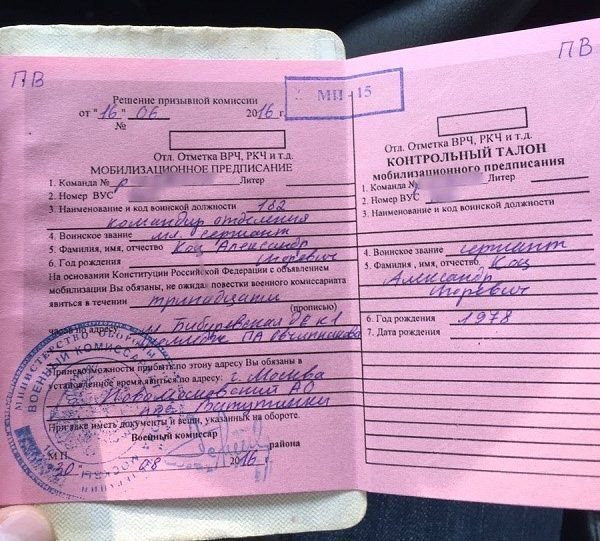 ПВ
Решение призывной комиссии
от "16" 06 2016 г.
№
Отл. Отметка ВРЧ, РКЧ и т.д.
МОБИЛИЗАЦИОННОЕ ПРЕДПИСАНИЕ
1. Команда № Р Литер
2. Номер ВУС
3. Наименование и код воинской должности 182
командир отделения
4. Воинское звание мл. сержант
5. Фамилия, имя, отчество Коц Александр
6. Год рождения Игоревич
На основании Конституции Российской Федерации с объявлением
мобилизации Вы обязаны, не ожидая повестки военного комиссариата
явиться в течении тринадцати
(прописью)
часов по адресу: м. Бибиревская
При невозможности прибыть по этому адресу Вы обязаны в
установленное время явиться по адресу: г. Москва
Новомосковский АО
Ватутинки
При себе иметь документы и вещи, указанные на обороте.
Военный комиссар
района
М.П.
"30" 08 2016 г.
МИНИСТЕРСТВО ОБОРОНЫ
ВОЕННЫЙ КОМИССАР
МП-15
ПВ
Отл. Отметка ВРЧ, РКЧ и т.д.
КОНТРОЛЬНЫЙ ТАЛОН
мобилизационного предписания
1. Команда № Литер
2. Номер ВУС
3. Наименование и код воинской должности
4. Воинское звание сержант
5. Фамилия, имя, отчество Коц
Александр
Игоревич
6. Год рождения 1978
7. Дата рождения